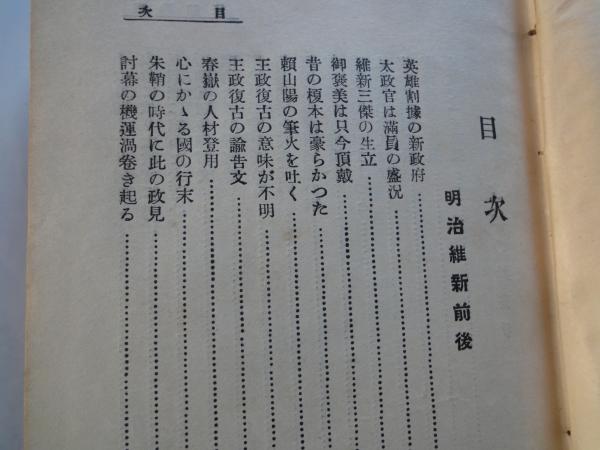 目次
目次
明治維新前後
英雄割據の新政府
太政官は滿員の盛況
維新三傑の生立
御褒美は只今頂戴
昔の榎本は豪らかつた
賴山陽の筆火を吐く
王政復古の意味が不明
王政復古の諭告文
春嶽の人材登用
心にかゝる國の行末
朱鞘の時代に此の政見
討幕の機運渦卷き起る